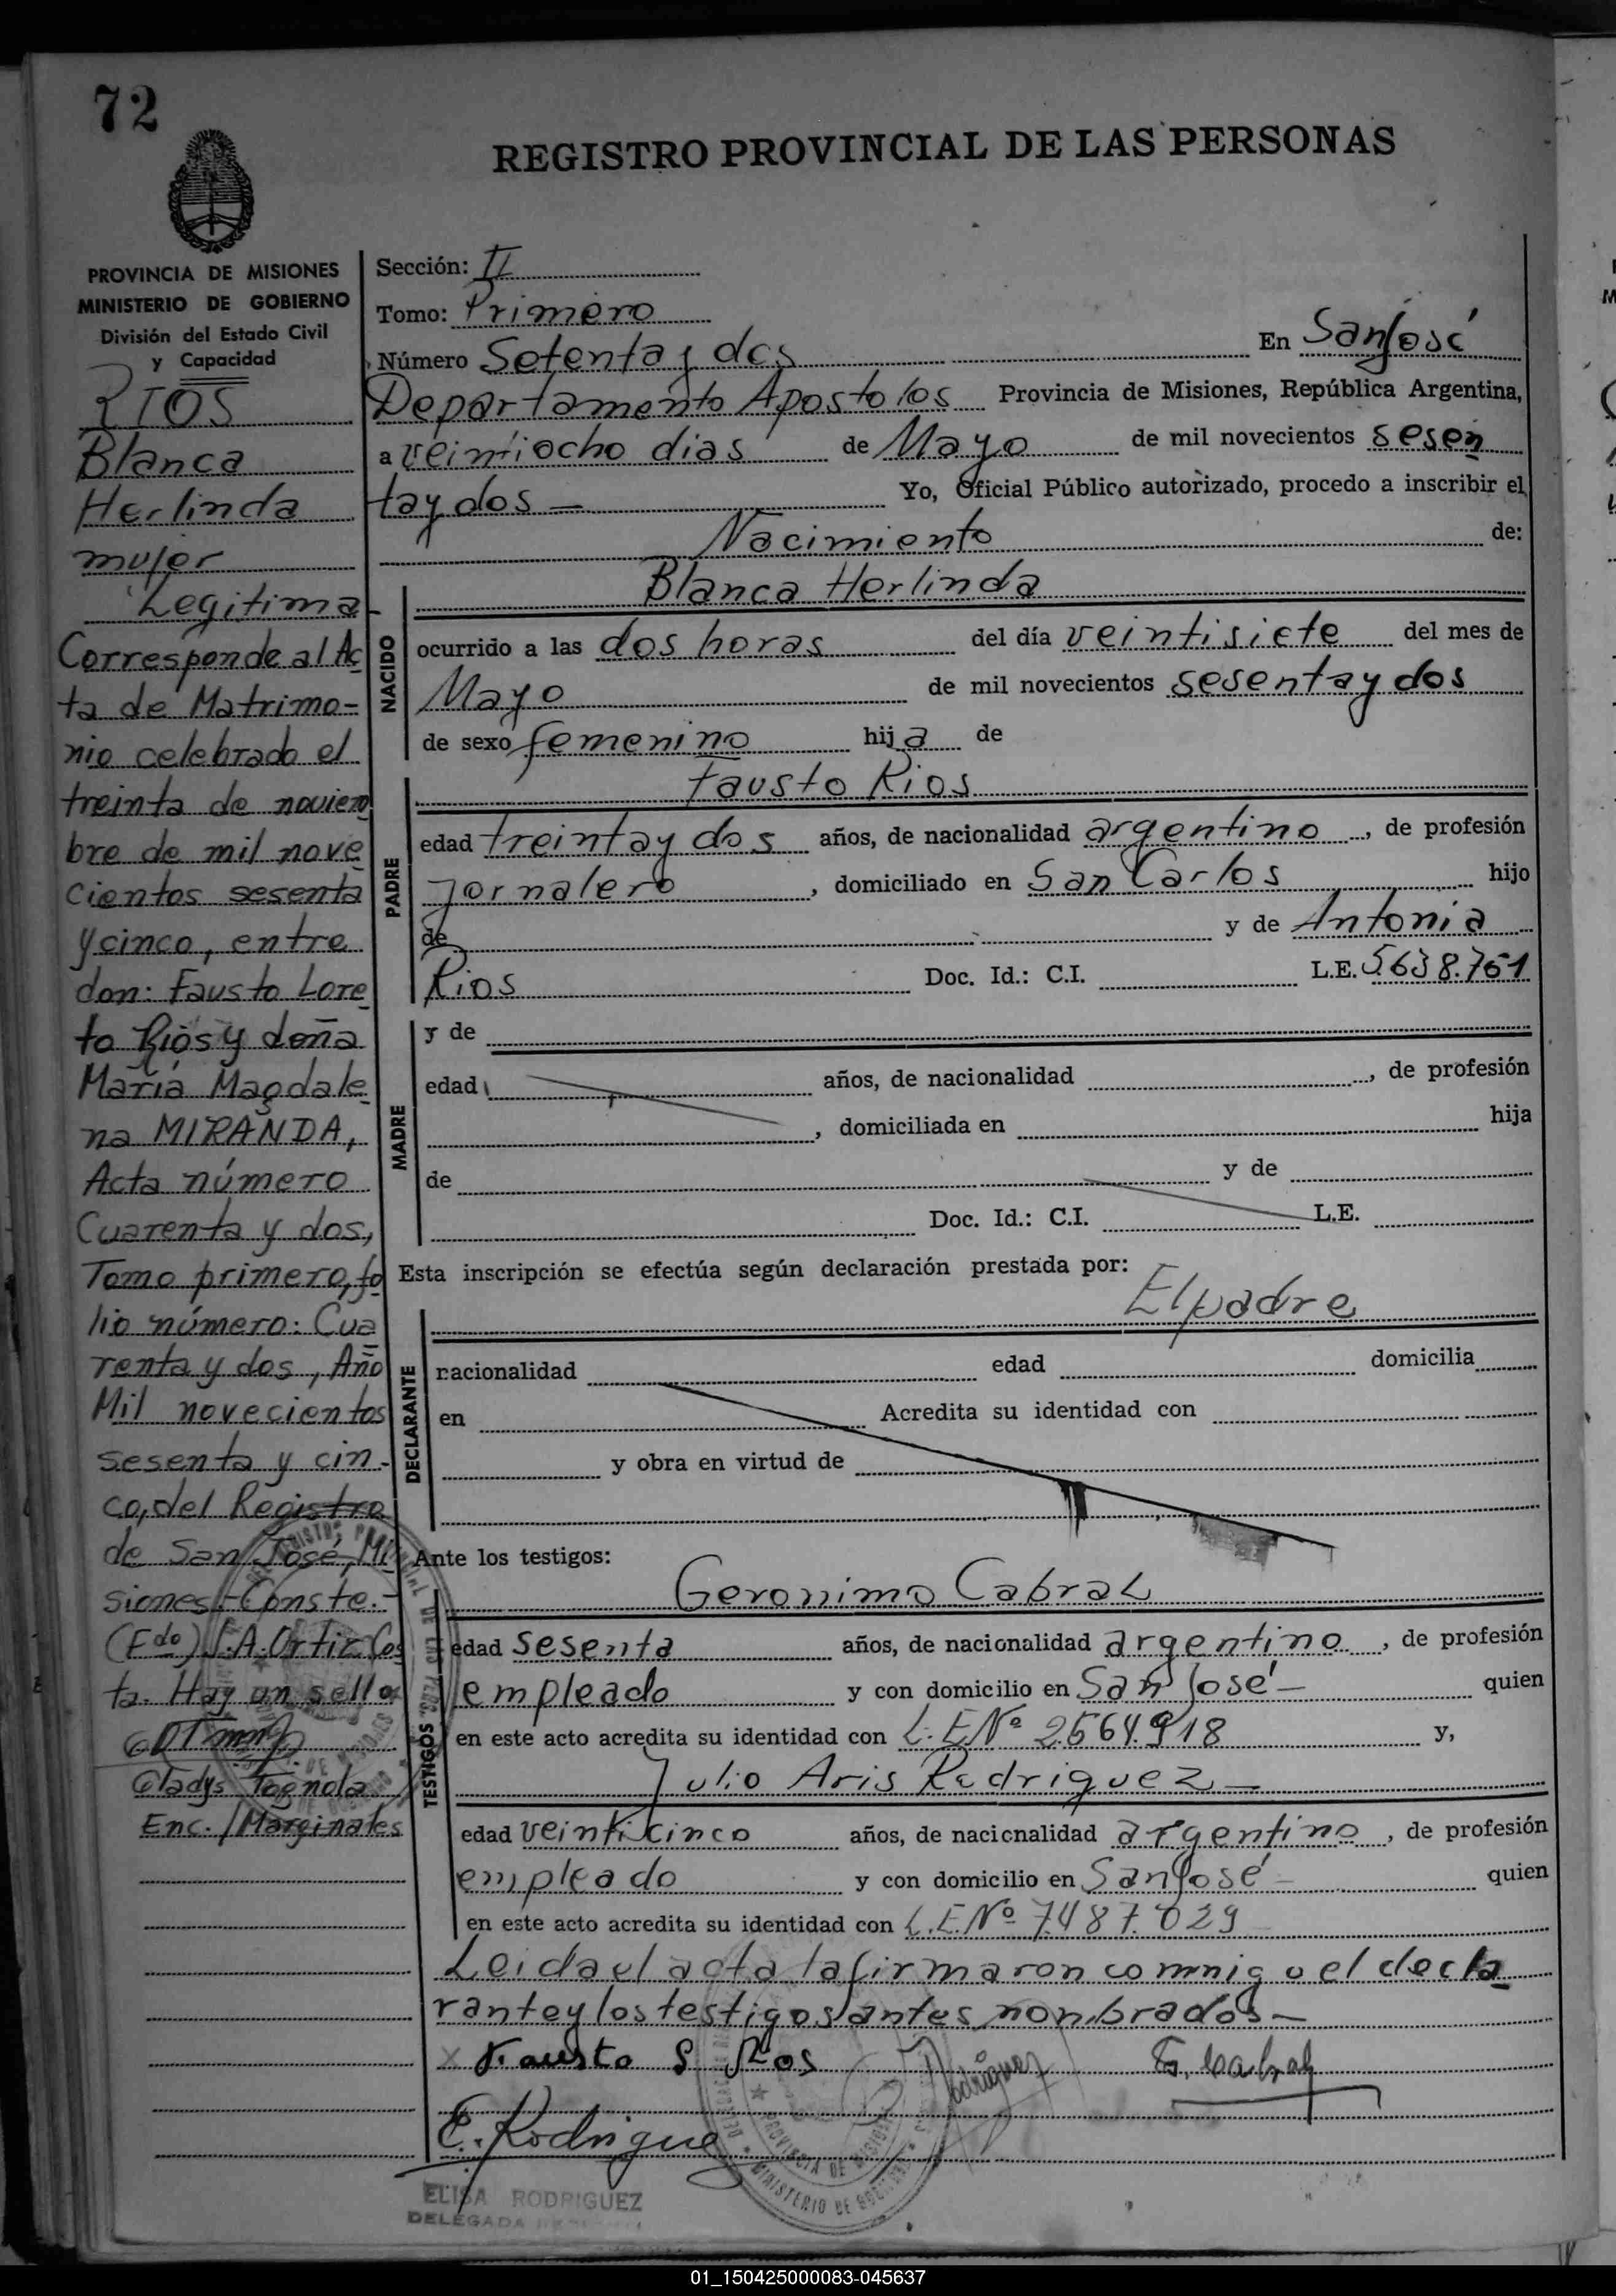 72
REGISTRO PROVINCIAL DE LAS PERSONAS
PROVINCIA DE MISIONES
MINISTERIO DE GOBIERNO
División del Estado Civil
y Capacidad
RIOS
Blanca
Herlinda
mujer
Legitima
Corresponde al Ac
ta de Matrimo-
nio celebrado el
treinta de noviem
bre de mil nove
cientos sesenta
y cinco, entre
don: Fausto Lore
to Rios y doña
María Magdale
na MIRANDA,
Acta número
Cuarenta y dos,
Tomo primero, fo
lio número: Cua
renta y dos, Año
Mil novecientos
sesenta y cin-
co, del Registro
de San José, Mi
siones.- Conste.-
(Fdo) J.A. Ortiz Cos
ta. Hay un sello
Gladys Tognola
Enc./Marginales
Sección: II
Tomo: Primero
Número Setenta y dos En San José
Departamento Apostolos Provincia de Misiones, República Argentina,
a veintiocho dias de Mayo de mil novecientos sesen
tay dos — Yo, Oficial Público autorizado, procedo a inscribir el
Nacimiento de:
Blanca Herlinda
NACIDO
ocurrido a las dos horas del día veintisiete del mes de
Mayo de mil novecientos sesenta y dos
de sexo femenino hija de
Fausto Rios
PADRE
edad treinta y dos años, de nacionalidad argentino, de profesión
Jornalero, domiciliado en San Carlos hijo
de y de Antonia
Rios Doc. Id.: C.I. L.E. 5.638.761
MADRE
y de
edad años, de nacionalidad , de profesión
, domiciliada en hija
de y de
Doc. Id.: C.I. L.E.
Esta inscripción se efectúa según declaración prestada por:
El padre
DECLARANTE
nacionalidad edad domicilia
en Acredita su identidad con
y obra en virtud de
Ante los testigos:
Geronimo Cabral
TESTIGOS
edad sesenta años, de nacionalidad argentino, de profesión
empleado y con domicilio en San José — quien
en este acto acredita su identidad con L.E Nº 2.564.918 y,
Julio Aris Rodriguez —
edad veinticinco años, de nacionalidad argentino, de profesión
empleado y con domicilio en San José — quien
en este acto acredita su identidad con L.E Nº 7.487.029
Leida el acta la firmaron commigo el decla
rante y los testigos antes nombrados —
x Fausto Rios Rodriguez G. Cabral
E. Rodriguez
ELISA RODRIGUEZ
DELEGADA
PROVINCIA DE MISIONES
MINISTERIO DE GOBIERNO
01_150425000083-045637